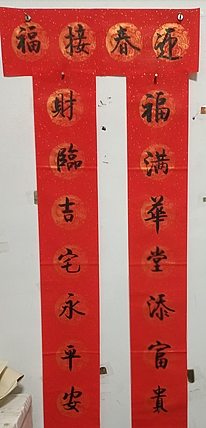 迎春接福
福滿華堂添富貴
財臨吉宅永平安